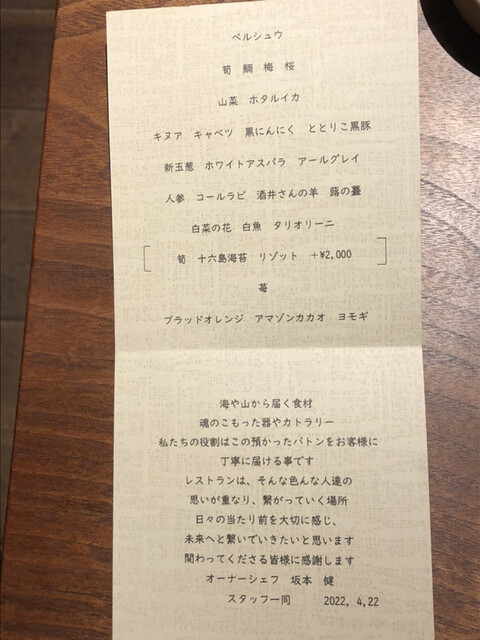 ペルシュウ
筍 鯛 梅 桜
山菜 ホタルイカ
キヌア キャベツ 黒にんにく ととりこ黒豚
新玉葱 ホワイトアスパラ アールグレイ
人参 コールラビ 酒井さんの羊 蕗の薹
白菜の花 白魚 タリオリーニ
筍 十六島海苔 リゾット +¥2,000
苺
ブラッドオレンジ アマゾンカカオ ヨモギ
海や山から届く食材
魂のこもった器やカトラリー
私たちの役割はこの預かったバトンをお客様に
丁寧に届ける事です
レストランは、そんな色んな人達の
思いが重なり、繋がっていく場所
日々の当たり前を大切に感じ、
未来へと繋いでいきたいと思います
関わってくださる皆様に感謝します
オーナーシェフ 坂本 健
スタッフ一同 2022, 4,22